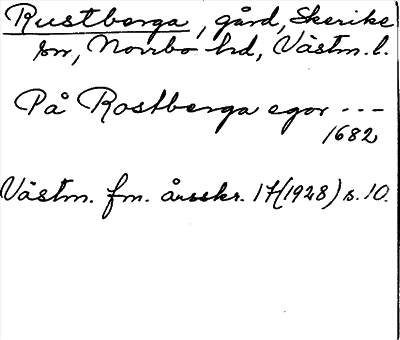 Rustberga, gård, Skerike
sn, Norrbo hd, Västm. l.
På Rostberga egor ---
1682
Västm. fm. årsskr. 17(1928) s. 10.